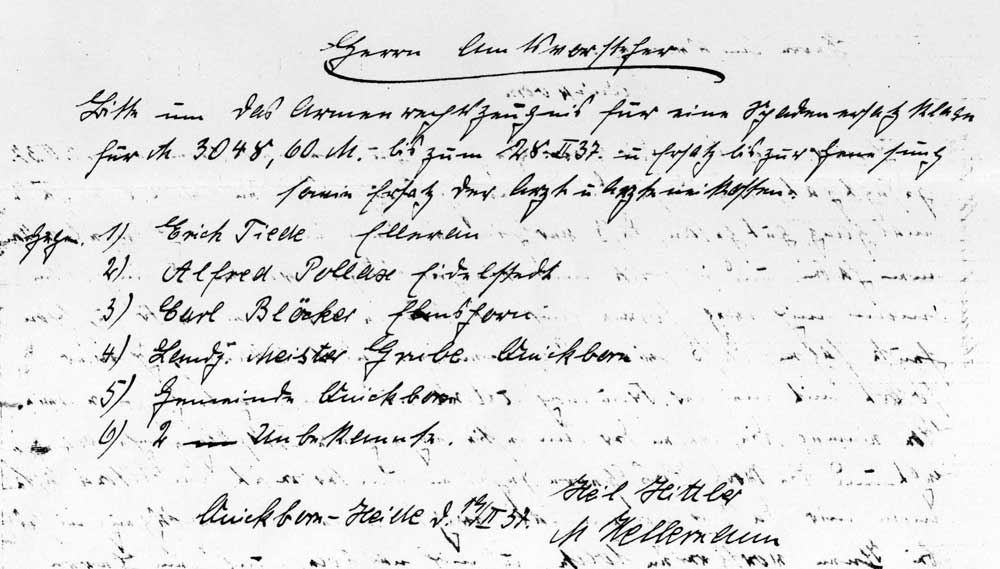 Herrn Amtsvorsteher
Bitte um das Armenrechtszeugnis für eine Schadenersatz Klage
für M 3048,60 M.- bis zum 28.II.37. u Ersatz bis zur Genesung
sowie Ersatz der Arzt u Arzneikosten.
Gegen. 1) Erich Tiede Ellerau
2) Alfred Pollax Eidelstedt
3) Carl Blöcker Elmshorn
4) Landj. Meister Grube. Quickborn
5) Gemeinde Quickborn
6) 2 Unbekannte.
Heil Hittler
Quickborn-Heide d. II 37.
M Hellermann